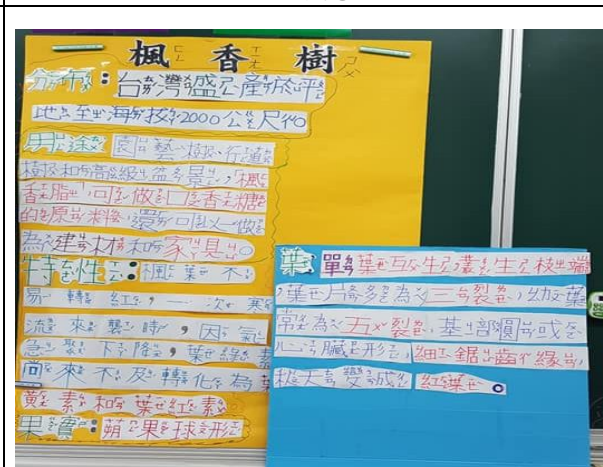 楓香樹
分布:台灣盛產於平
地至海拔2000公尺
用途 園藝樹、行道
樹和高級盆景,楓
香脂可做口香糖
的原料,還可以做
為建材和家具。
特性:楓葉不
易轉紅,一次寒
流來襲時,因氣
急聚下降,葉綠素
來不及轉化為
黃素和葉紅素
果實:蒴果球形
葉:單葉互生叢生枝端
,葉片多為三裂,幼葉
常為五裂,基部圓或
心臟形,細鋸齒緣,
秋天變成紅葉。